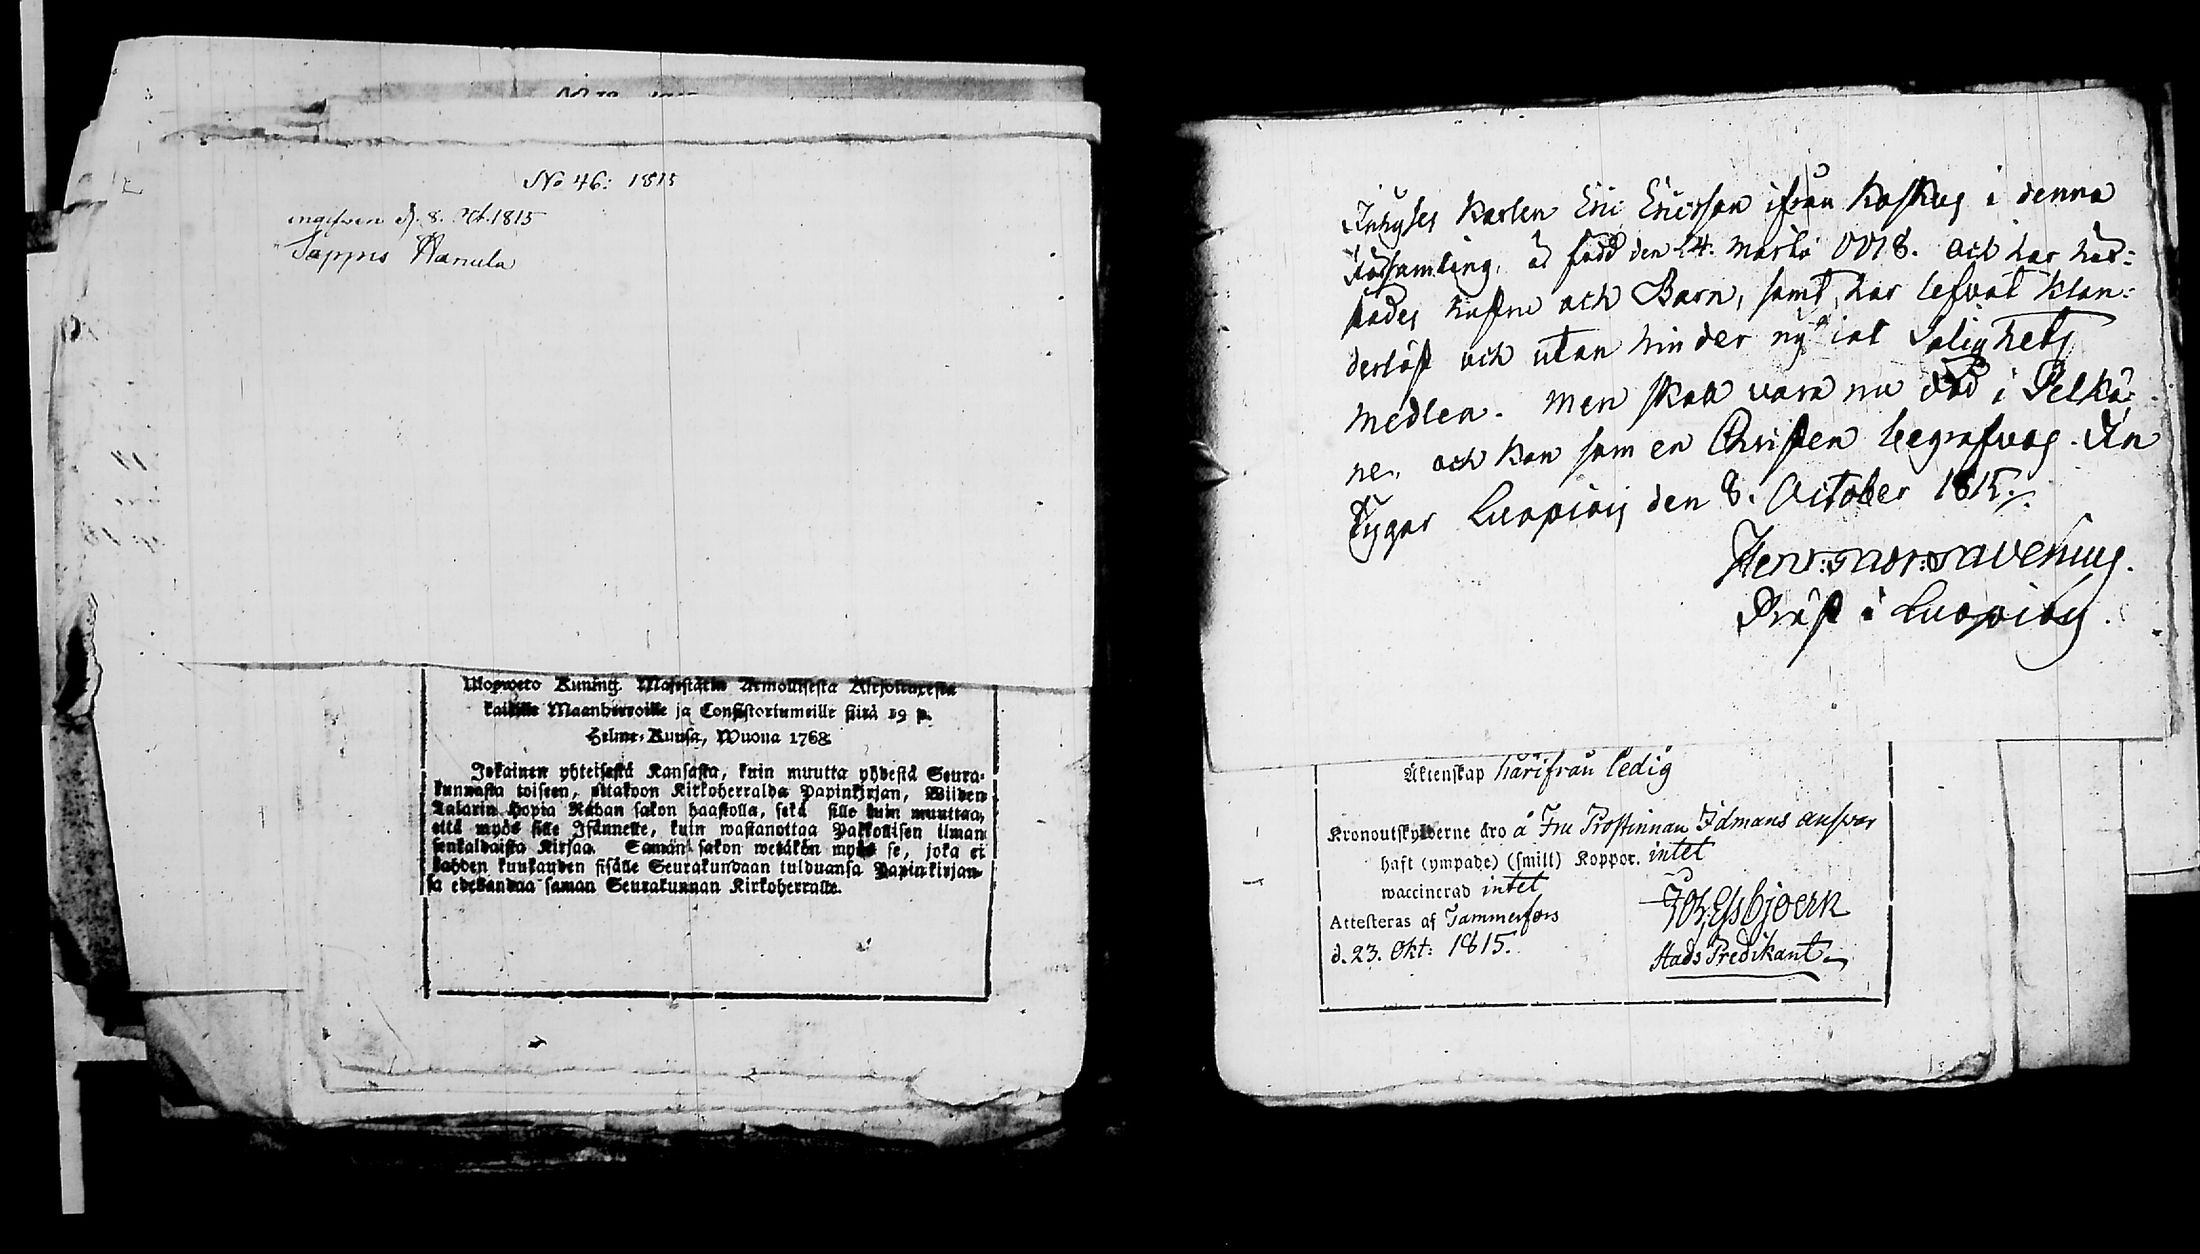 No 46: 1815
ingifven d. 8. Oct. 1815
Sappus Hanula
Ulosweto Kuning. Majestätin Armollisesta Kirjoituxesta
kaikille Maanherroille ja Consistoriumeille siitä 19 p.
Helme-Kuusa, Wuona 1768.
Jokainen yhteisestä Kansasta, kuin muutta yhdestä Seura-
kunnasta toiseen, ottakoon Kirkoherralda Papinkirjan, Wiiden
Talarin Hopia Rahan sakon haastolla, sekä sille kuin muuttaa,
että myös sille Isännelle, kuin wastanottaa Palkollisen ilman
senkaldaista Kirjaa. Saman sakon wetäkön myös se, joka ei
kahden kuukauden sisälle Seurakundaan tulduansa Papinkirjan-
sa edesandaa saman Seurakunnan Kirkoherralle.
Inhyses Karlen Eric Ericsson ifrån Kaskus i denna
Församling, är född den 24. Martii 1778. och har här-
städes hustru och Barn, samt har lefvat klan-
derlöst och utan hinder nyttiat Salighets
medlen. Men skall vara nu död i Pelkä-
ne, och kan som en Christen begrafvas. Un
tygar Luopiois den 8. October 1815.
Henr:
Präst i Luopiois.
Äktenskap härifrån ledig
Kronoutskylderne äro å Fru Prostinnan Idmans ansvar
haft (ympade) (smitt) Koppor. intet
waccinerad intet
Attesteras af Tammerfors
Joh: Essbjoern
d. 23. Okt: 1815.
Stads Predikant.